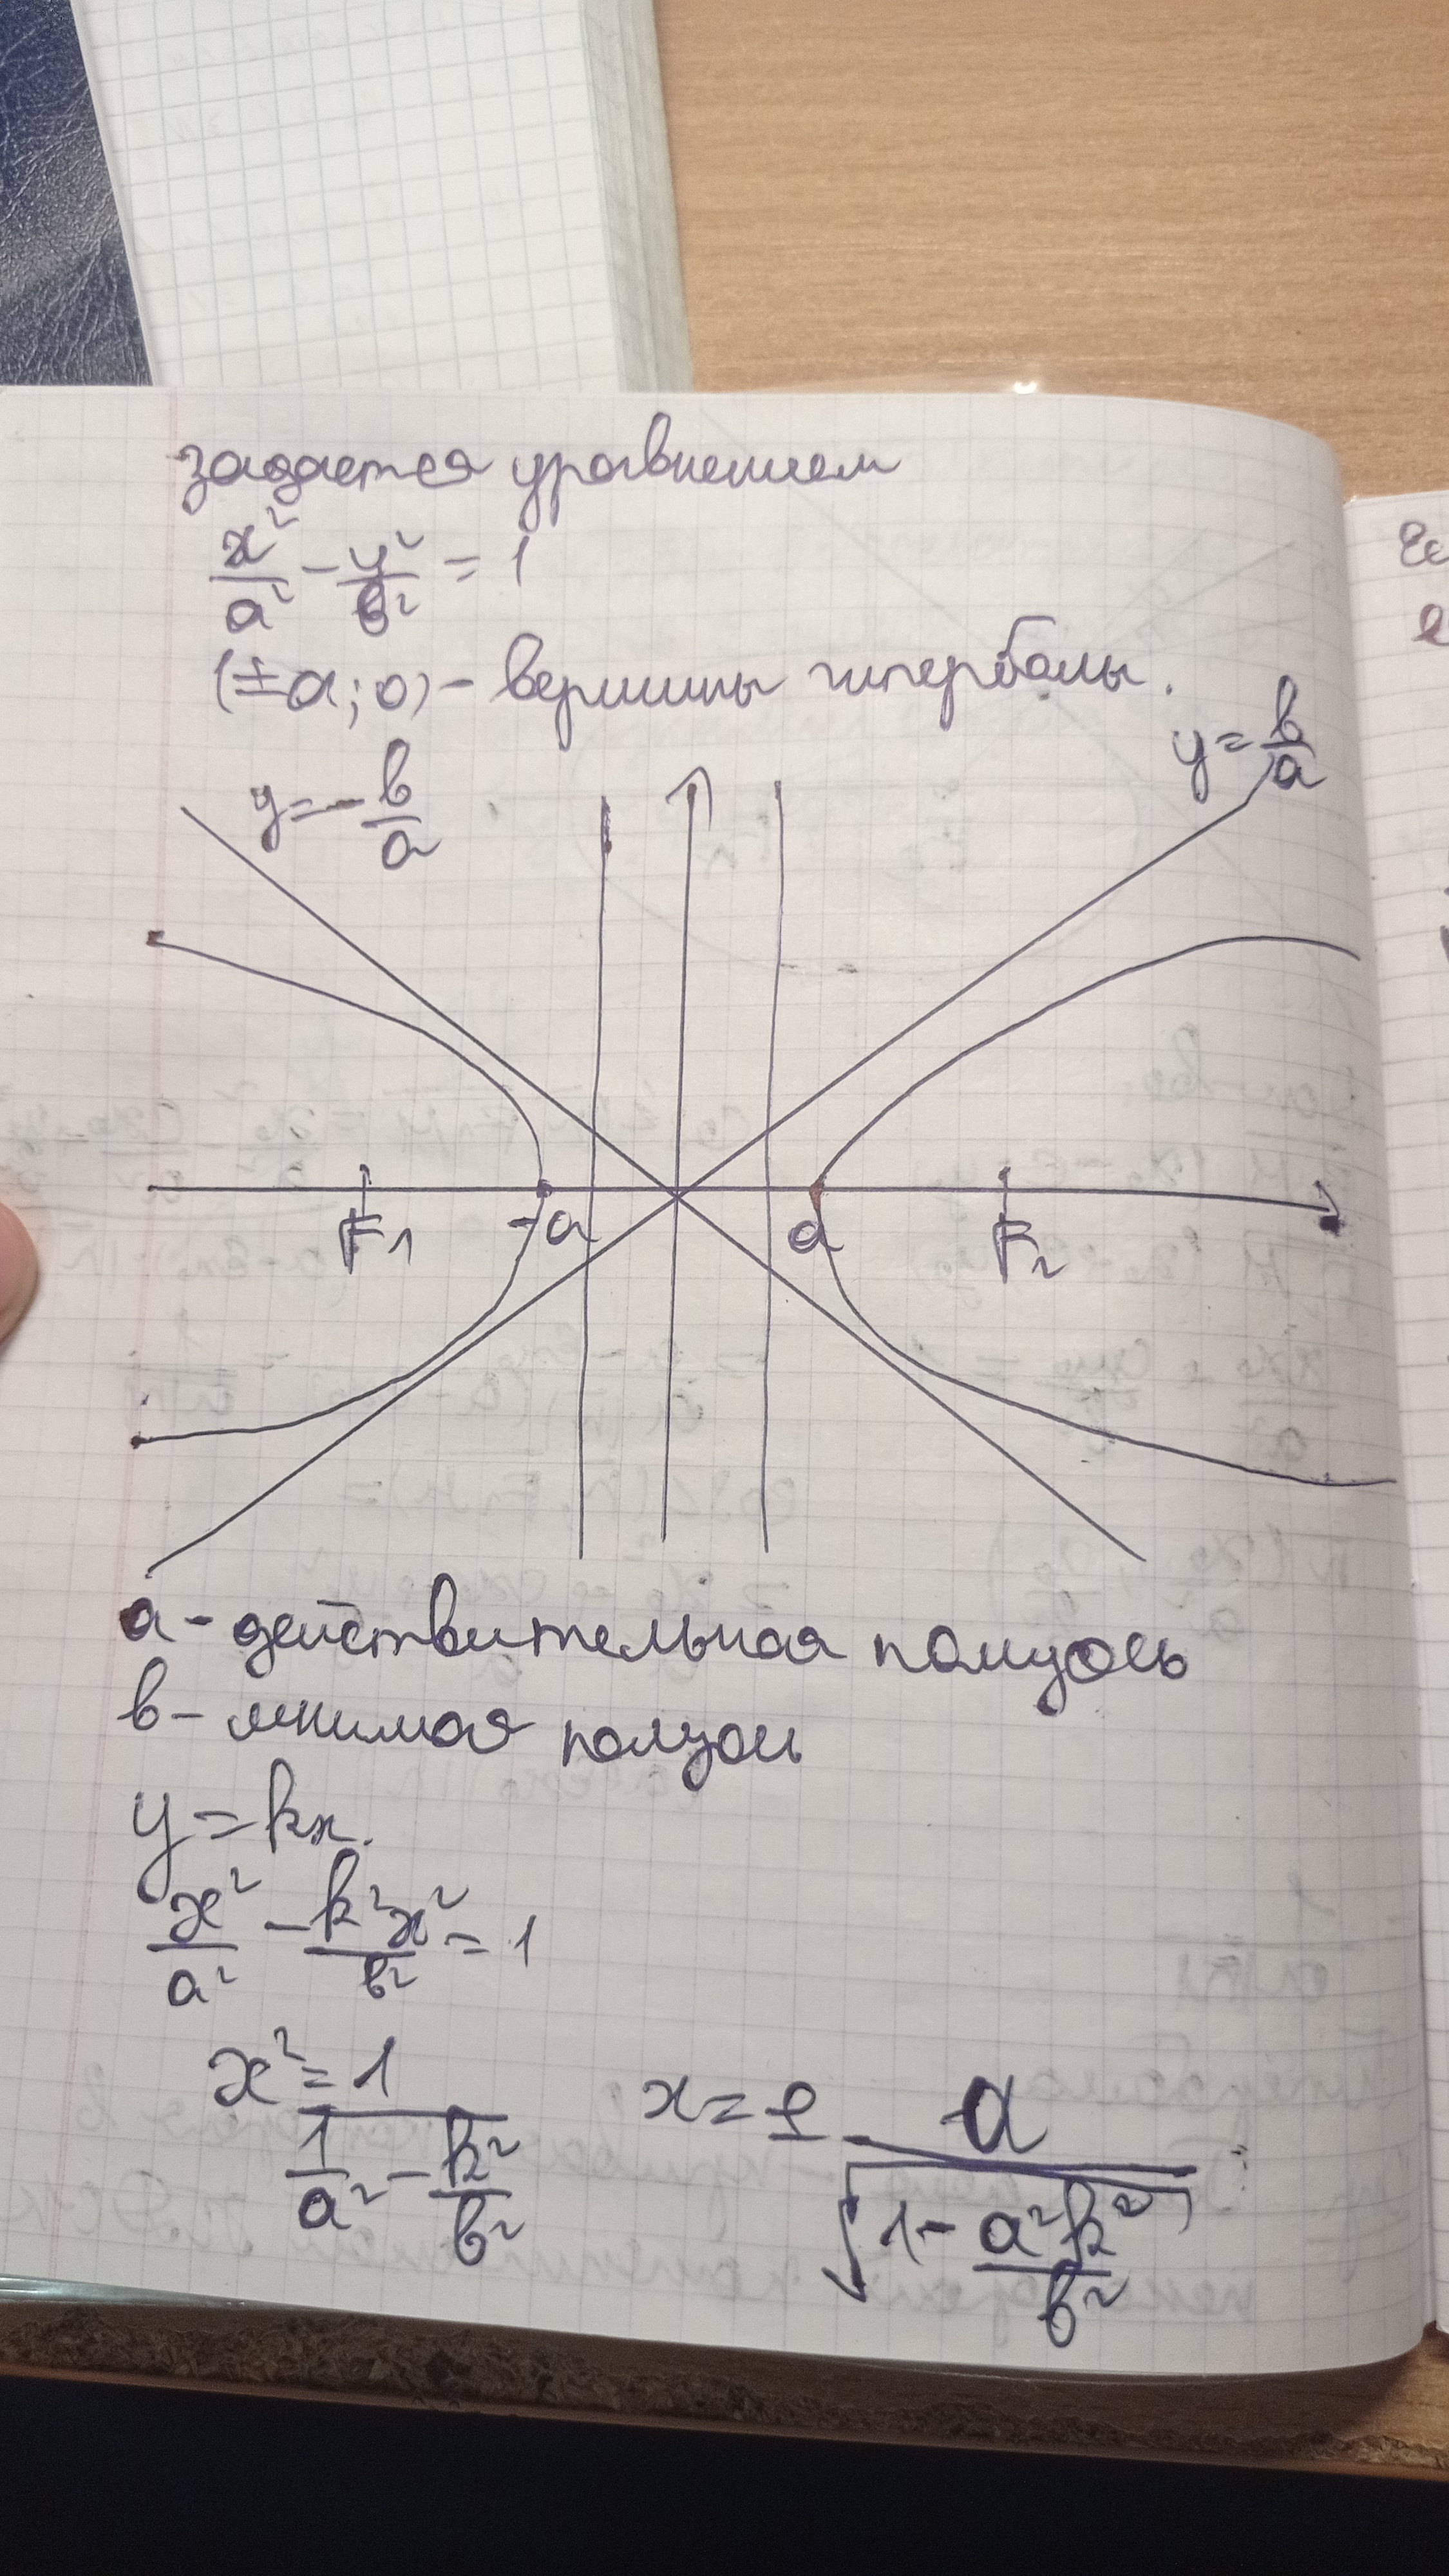 задается уравнением
x²/a² - y²/b² = 1
(±a; 0) - вершины гиперболы.
y = -b/a
y = b/a
F₁ -a a F₂
a - действительная полуось
b - мнимая полуось
y = kx.
x²/a² - k²x²/b² = 1
x² = 1/(1/a² - k²/b²) x = ± a/√(1 - a²k²/b²)